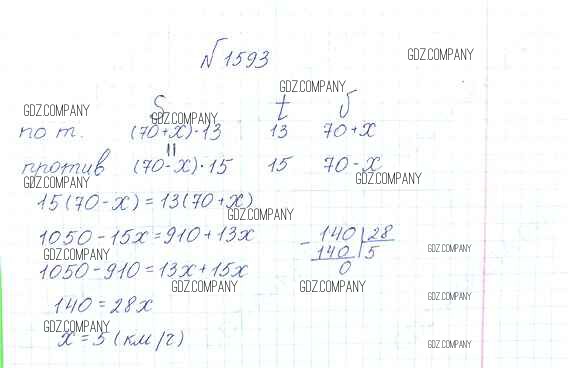 № 1593
GDZ.COMPANY
GDZ.COMPANY
S t v
GDZ.COMPANY
GDZ.COMPANY
по т. (70+x)·13 13 70+x
||
против (70-x)·15 15 70-x
GDZ.COMPANY
GDZ.COMPANY
15(70-x)=13(70+x)
GDZ.COMPANY
1050-15x=910+13x
- 140 | 28
140 5
0
GDZ.COMPANY
GDZ.COMPANY
1050-910=13x+15x
GDZ.COMPANY
GDZ.COMPANY
140=28x
GDZ.COMPANY
GDZ.COMPANY
x=5(км/ч)
GDZ.COMPANY